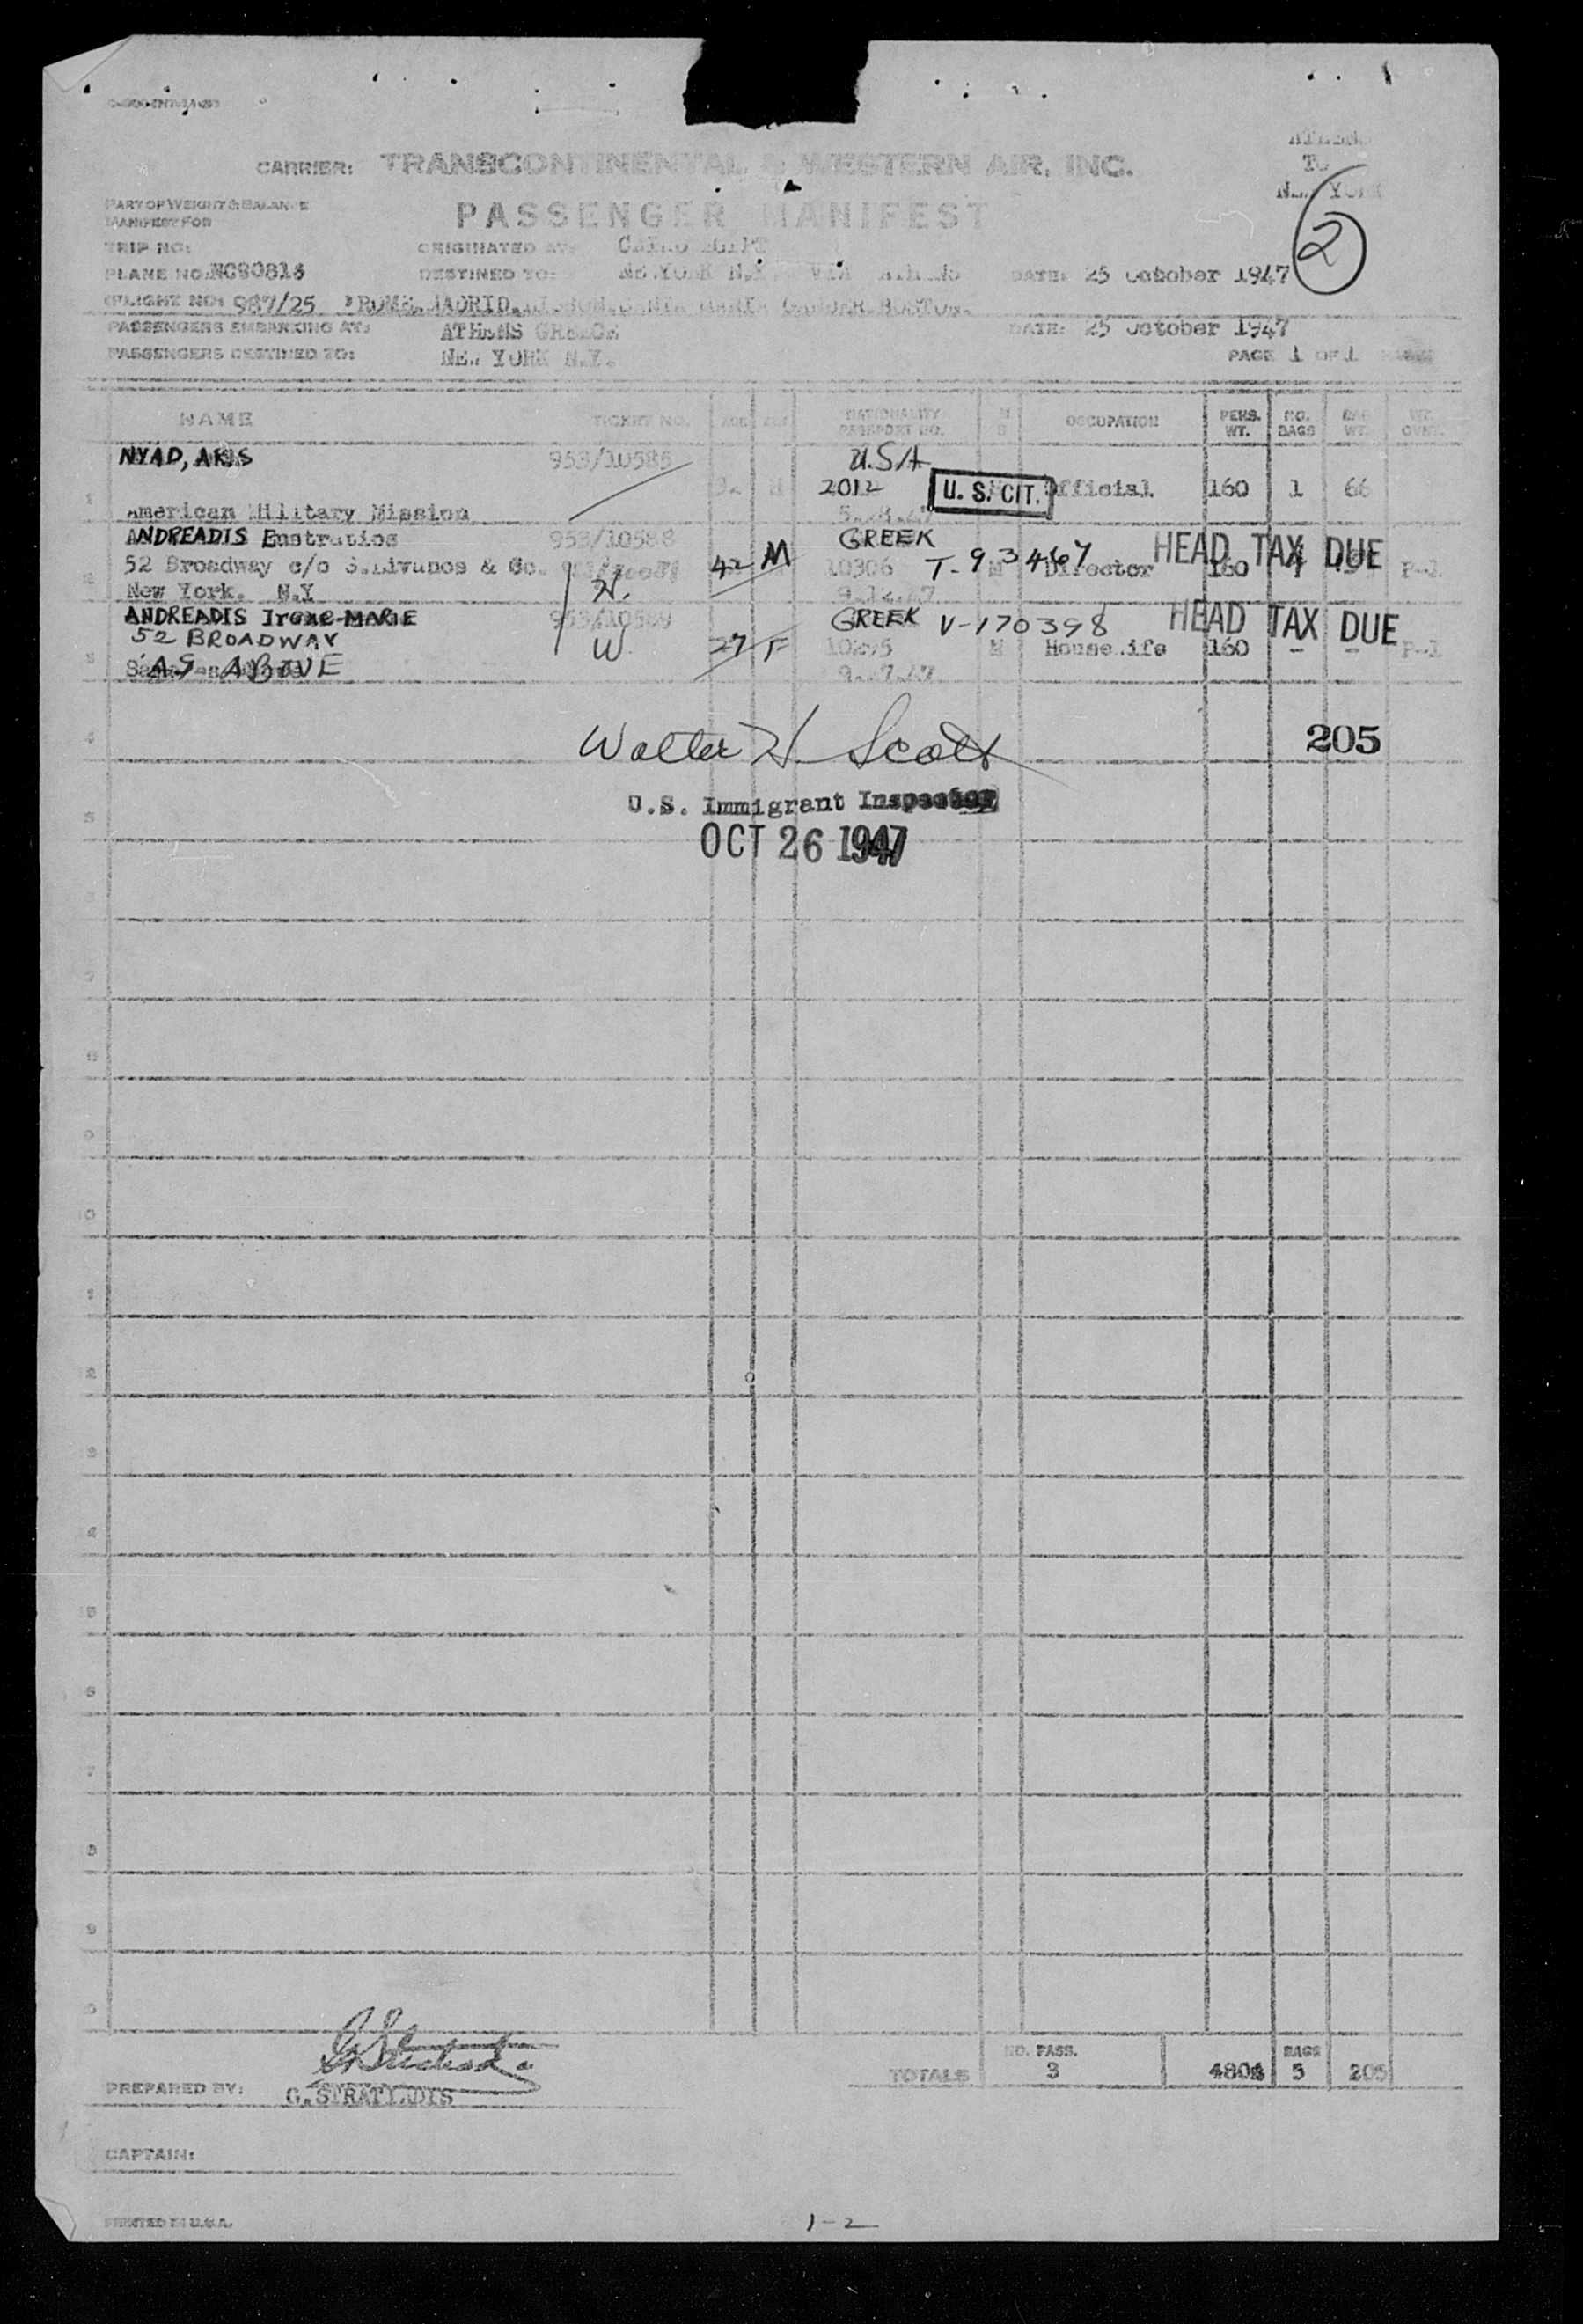 ATHENS
CARRIER: TRANSCONTINENTAL & WESTERN AIR, INC.
TO
NEW YORK
2
PART OF WEIGHT & BALANCE
MANIFEST FOR
PASSENGER MANIFEST
TRIP NO:
ORIGINATED AT: CAIRO EGIPT
PLANE NO: NC90816
DESTINED TO: NEW YORK N.Y. VIA ATHENS
DATE: 25 October 1947
FLIGHT NO: 987/25 ROME, MADRID, LISBON, SANTA MARIA GANDER BOSTON.
PASSENGERS EMBARKING AT: ATHENS GREECE
DATE: 25 October 1947
PASSENGERS DESTINED TO: NEW YORK N.Y.
PAGE 1 OF 1
NAME TICKET NO. AGE SEX NATIONALITY PASSPORT NO. M S OCCUPATION PERS. WT. NO. BAGS BAG WT. WT. OVER.
NYAD, AKIS 953/10585 U.S.A
1 M 2012 U. S. CIT. Official 160 1 66
American Military Mission
ANDREADIS Eustratios 953/10588 GREEK T-93467 HEAD TAX DUE
2 52 Broadway c/o S.Livanos & Co. 42 M 10306 M Director 160
New York. N.Y H. 9.12.47
ANDREADIS Irene-MARIE 953/10589 GREEK V-170398 HEAD TAX DUE
52 BROADWAY W 27 F M Housewife 160 - -
3 AS ABOVE
4 Walter H. Scott 205
U.S. Immigrant Inspector
5
OCT 26 1947
7
8
9
10
1
2
3
4
15
6
7
8
9
0
TOTALS NO. PASS. 3 480 BAGS 5 205
PREPARED BY: G.STRATIADIS
CAPTAIN:
PRINTED IN U.S.A.
1-2